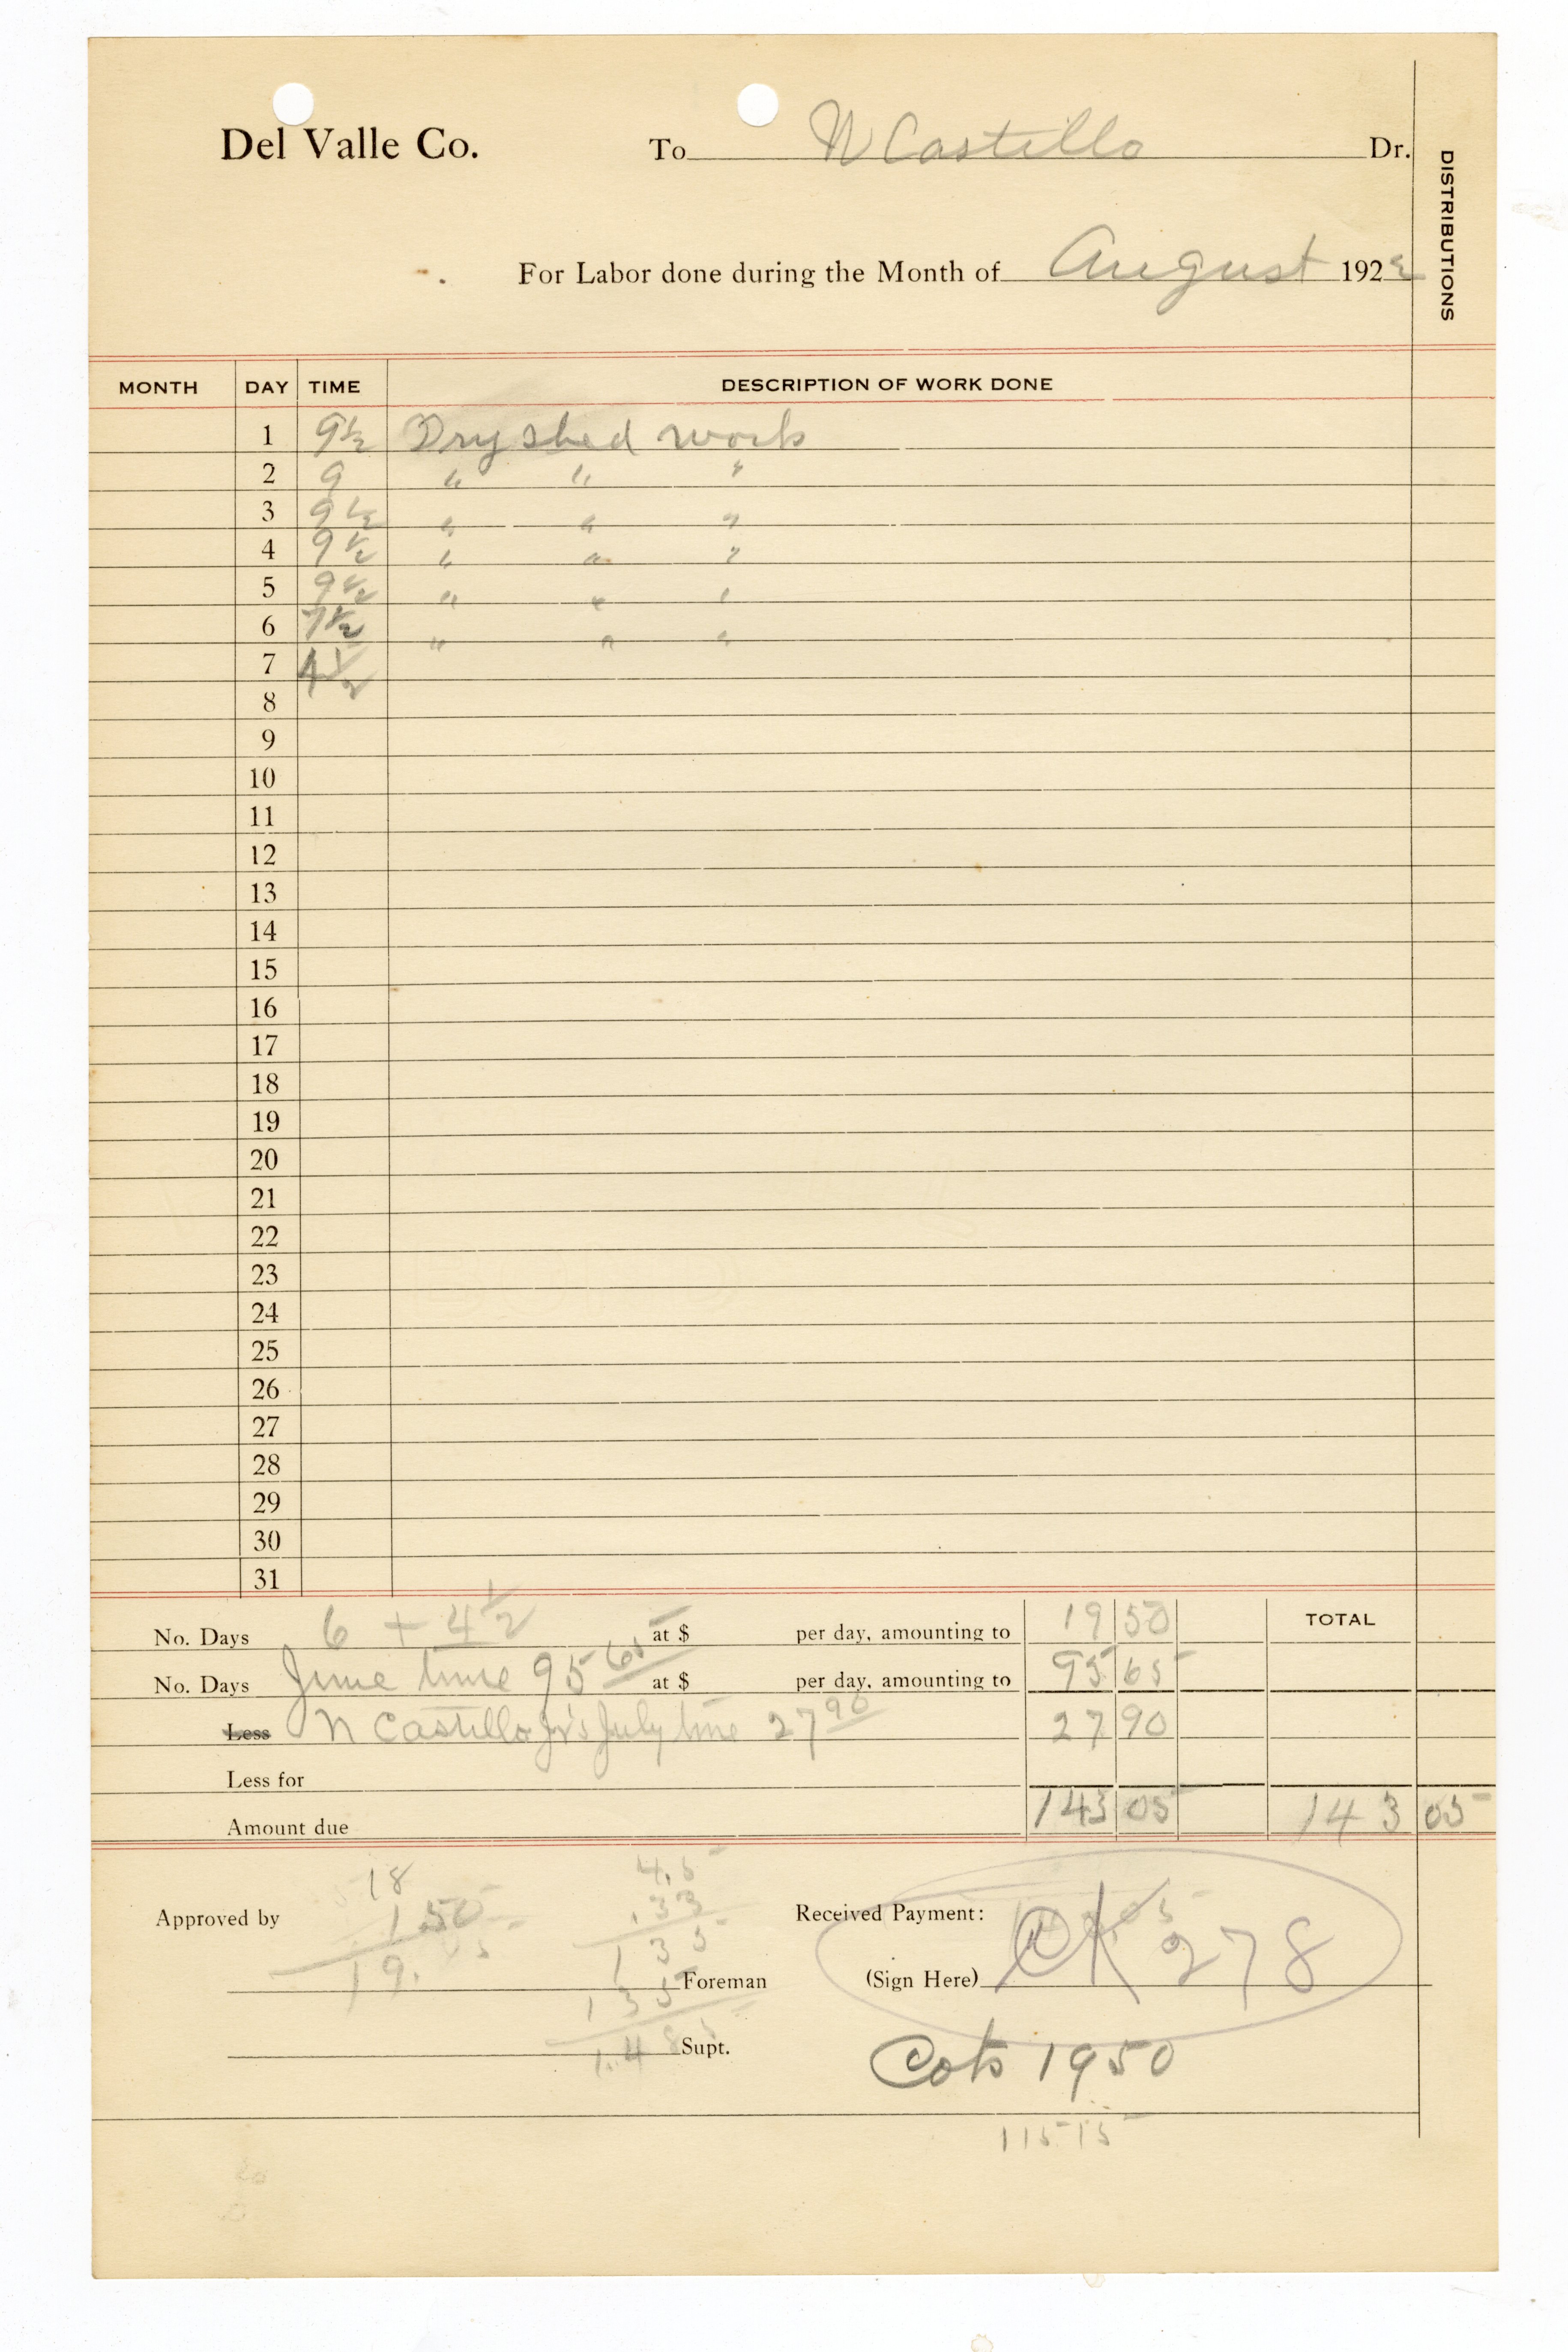 Del Valle Co. To N Castillo Dr.
DISTRIBUTIONS
For Labor done during the Month of August 1922
MONTH DAY TIME DESCRIPTION OF WORK DONE
1 9½ Dry shed work
2 9 " " "
3 9½ " " "
4 9½ " " "
5 9½ " " "
6 7½ " " "
7 4½
8
9
10
11
12
13
14
15
16
17
18
19
20
21
22
23
24
25
26
27
28
29
30
31
No. Days 6 + 4½ at $ per day, amounting to 19 50 TOTAL
No. Days June time 95 65 at $ per day, amounting to 95 65
Less N Castillo Jr's July time 27 90 27 90
Less for
Amount due 143 05 143 05
18
1.50
19.
4.5
.33
135
135
1.485
Approved by
Received Payment:
Foreman
(Sign Here) CK 278
Supt.
Cots 1950
115 15